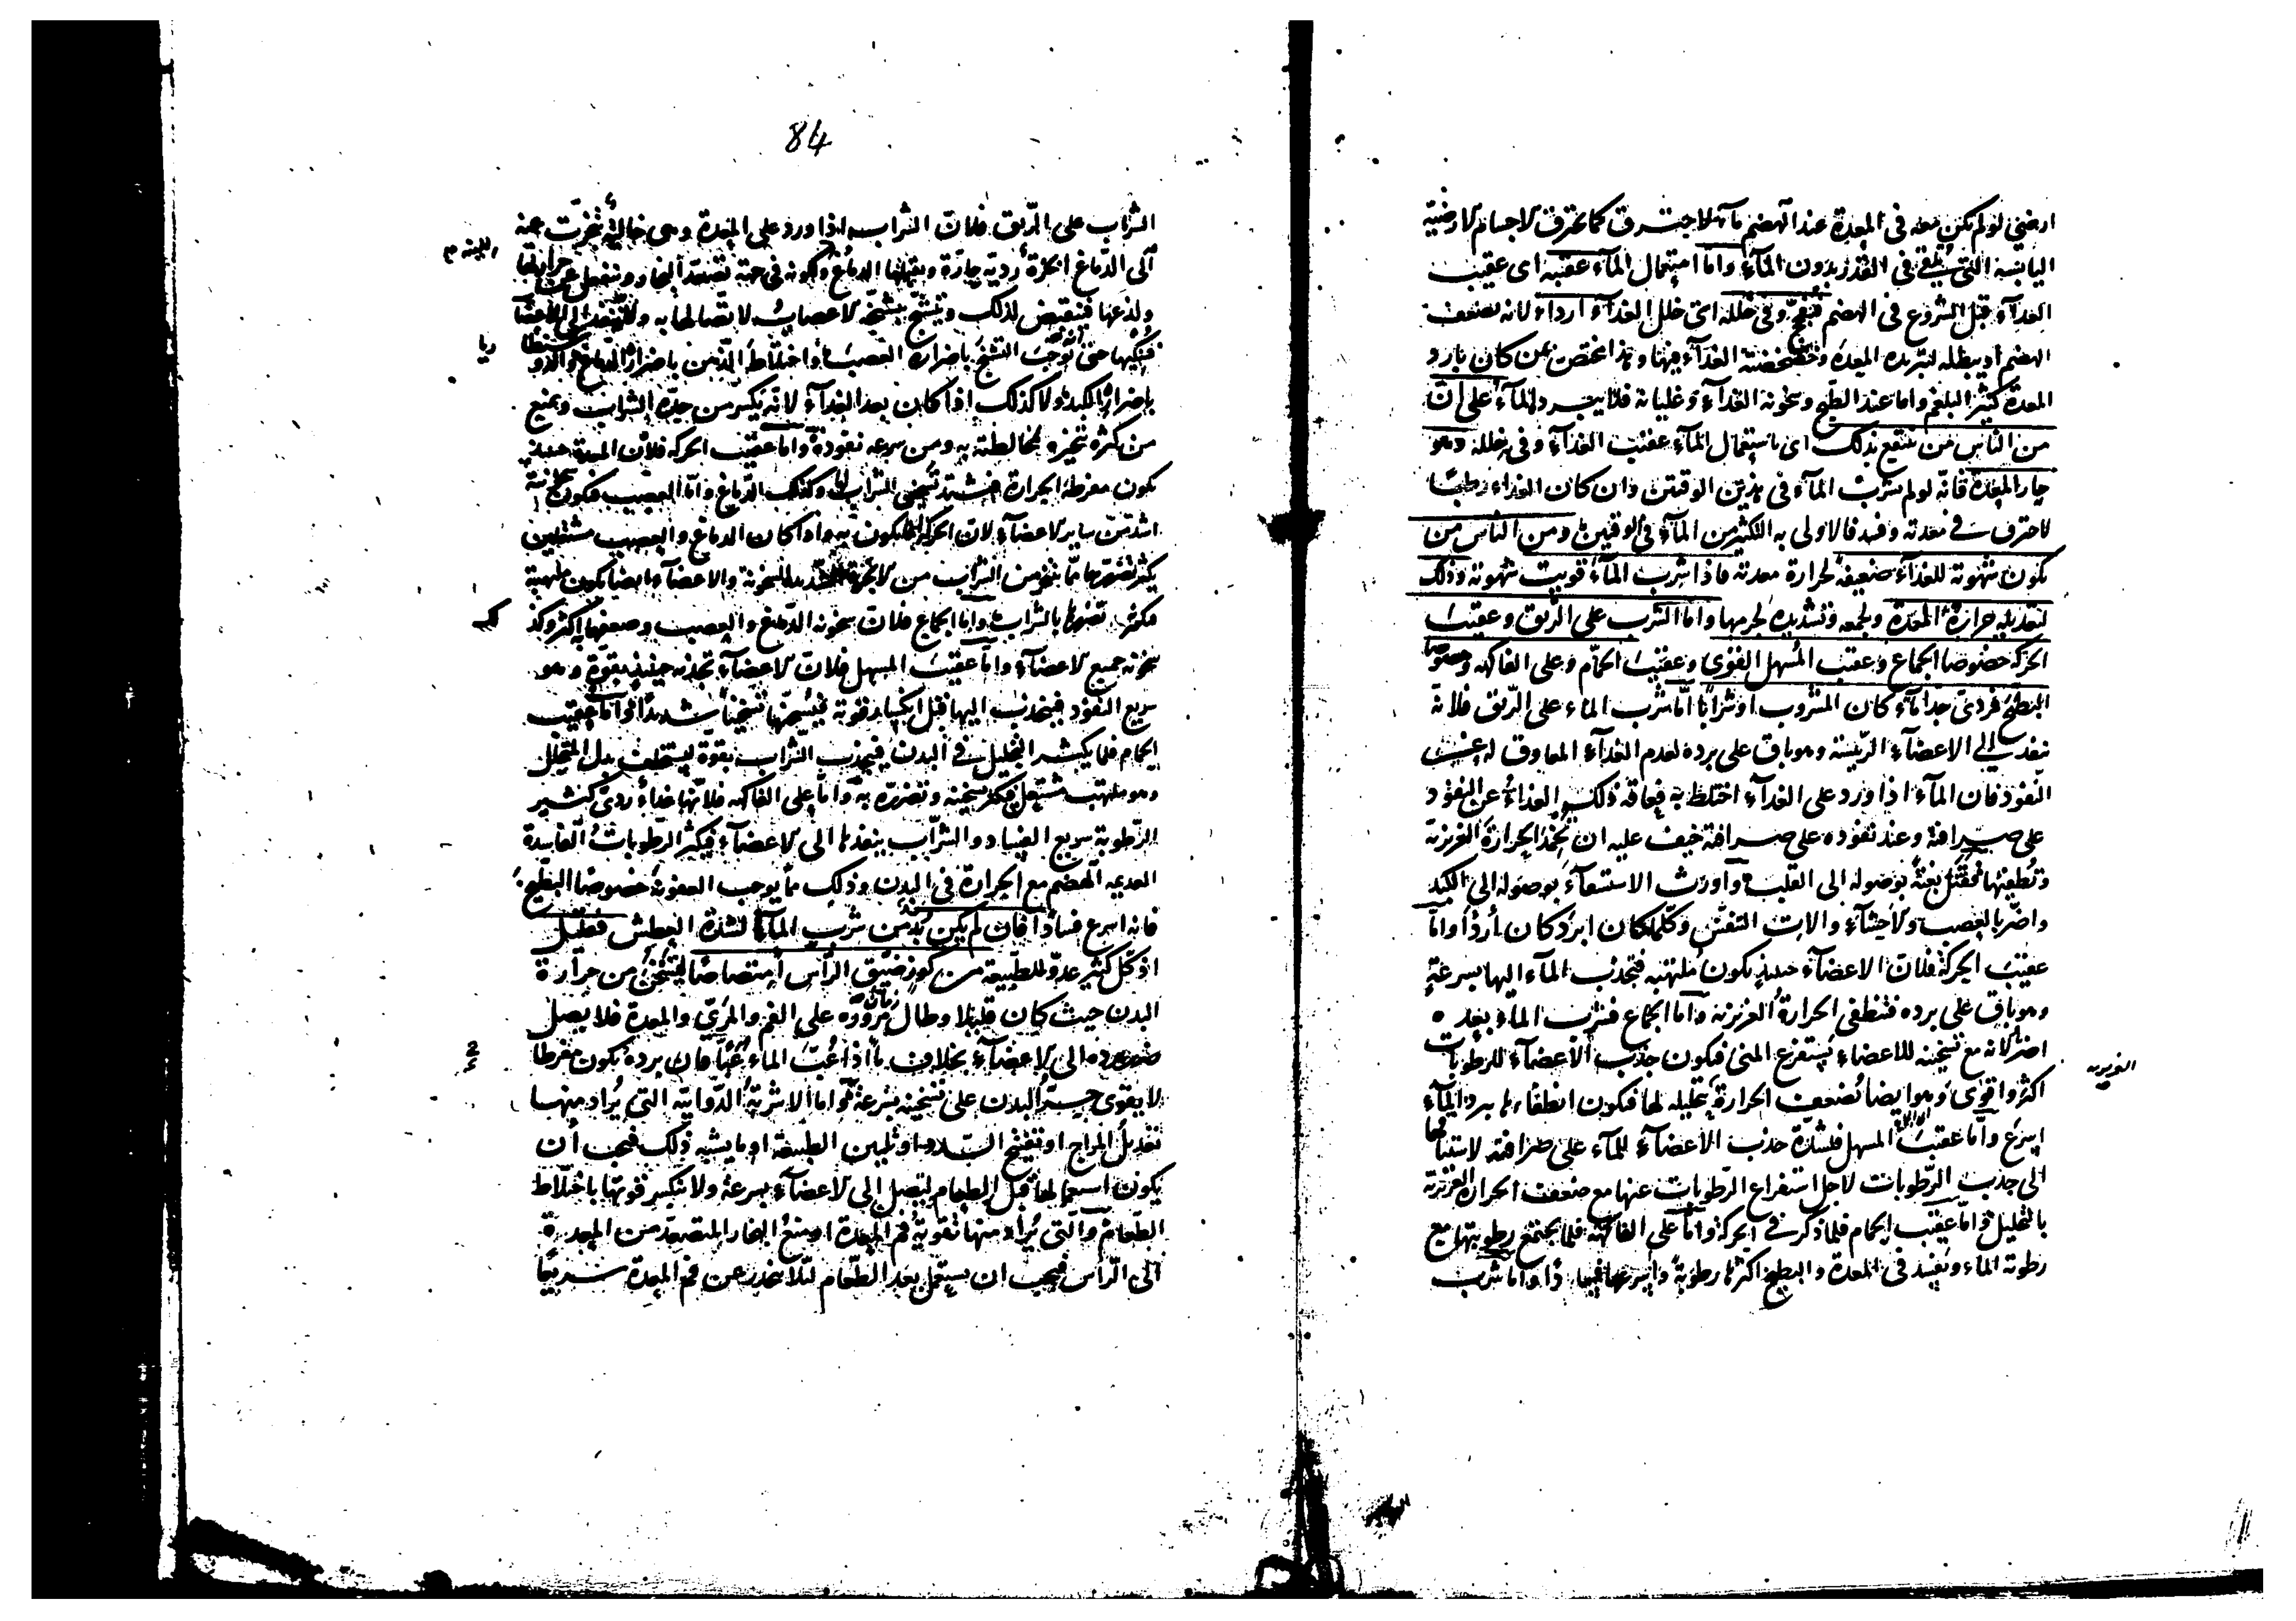 ارضي لو لم يكن معه في المعدة عند الهضم مآء لاحترق كما يحترق الاجسام الارضية
اليابسة التي تلقى في القدر بدون المآء واما استعمال المآء عقيبه اى عقيب
الغدآء قبل الشروع في الهضم فيفجج وفي خلله اى خلل الغدآء ارداء لانه يضعف
الهضم او يبطله لتبريده المعدة وخضخضته الغدآء فيها وهذا مختص بمن كان بارد
المعدة كثير البلغم واما عند الطبخ وسخونة الغدآء وغليانه فلا يبرد المآء على ان
من الناس من ينتفع بذلك اى باستعمال المآء عقيب الغدآء وفي خلله وهو
حار المعدة فانّه لو لم يشرب المآء في هذين الوقتين وان كان الغداء رطبًا
لاحترق في معدته وفسد فالاولى به التكثير من المآء في الوقتين ومن الناس من
يكون شهوته للغدآء ضعيفة لحرارة معدته فاذا شرب المآء قويت شهوته وذلك
لتعديله حرارة المعدة ولجمعه وتشديده لجرمها واما الشرب على الريق وعقيب
الحركة خصوصا الجماع وعقيب المسهل القوى وعقيب الحمّام وعلى الفاكهة وخصوصا
البطيخ فردئ جدا مآء كان المشروب او شرابًا امّا شرب الماء على الرّيق فلانه
ينفد الى الاعضآء الرئيسة وهو باق على برده لعدم الغدآء المعاوق له عن
النّفود فان المآء اذا ورد على الغدآء اختلط به فعاقه ذلك الغداء عن النفود
على صرافته وعند نفوده على صرافته خيف عليه ان يخمد الحرارة الغريزية
وتطفئها فقتل بغتة بوصوله الى القلب وأورث الاستسقآء بوصوله الى الكبد
واضرّ بالعصب والاحشآء والات التنفس وكلما كان ابرد كان أردأ واما
عقيب الحركة فلان الاعضآء حينئذ يكون ملتهبة فتجذب المآء اليها بسرعة
وهو باق على برده فتنطفى الحرارة الغريزية واما الجماع فشرب الماء بعده
اضر لانه مع تسخينه للاعضاء يستفرغ المنى فيكون جذب الاعضآء للرطوبات
الغريزية
اكثر واقوى وهو ايضا يضعف الحرارة بتحليله لها فيكون انطفاءها ببرد المآء
اسرع وامّا عقيب المسهل فلشدّة جذب الاعضآء للمآء على صرافته لاشتياقها
الى جذب الرّطوبات لاجل استفراغ الرطوبات عنها مع ضعف الحرارة الغريزية
بالتحليل وامّا عقيب الحمام فلما ذكر في الحركة وامّا على الفاكهة فلما يجتمع رطوبتها مع
رطوبة الماء ويفسد في المعدة والبطيخ اكثرها رطوبة واسرعها فسادًا واما شرب
84
الشراب على الريق فلان الشراب اذا ورد على المعدة وهى خالية تبخرت عنه
الى الدّماغ ابخرة ردية حارّة ولكونه في جهة تصعد البخار وينفعل عن حرارتها
ولذعها فينقبض لذلك ويتشنج بتشنجه الاعصاب لاتصالها به
باضراره الكبد ولا كذلك اذا كان بعد الغدآء لانّه يكسر من حدّة الشراب ويمنع
من كثرة تبخيره لمخالطته به ومن سرعة نفوده واما عقيب الحركة فلان المعدة حينئذ
يكون مفرطة الحرارة فيشتد تسخين الشراب لها وكذلك الدّماغ وامّا العصب فيكون سخونته
اشد من ساير الاعضآء لان الحركة انما يكون به واذا كان الدماغ والعصب مشتعلين
يكثر تضرّرهما بما يتبخر من الشراب من الابخرة الشديدة السخونة والاعضآء ايضا يكون ملتهبة
فيكثر تضررها بالشراب واما الجماع فلان سخونة الدّماغ والعصب وضعفهما به اكثر وكذ
سخونة جميع الاعضآء وامّا عقيب المسهل فلان الاعضآء تجذبه حينئذ بقوة وهو
سريع النفود فينجذب اليها قبل انكسار قوته فيسخنها تسخينًا شديدًا وامّا عقيب
الحمام فلما يكثر التحليل في البدن فيجذب الشراب بقوة ليستخلف بدل المتحلل
وهو ملتهب مشتعل فيكثر تسخينه وتضرره به وامّا على الفاكهة فلانّها غداء ردئ كثير
الرّطوبة سريع الفساد والشراب ينفدها الى الاعضآء فيكثر الرّطوبات الفاسدة
العديمة الهضم مع الحرارة في البدن وذلك ممّا يوجب العفونة خصوصًا البطيخ
فانه اسرع فسادًا فان لم يكن بد من شرب المآء لشدّة العطش فقليل
اذ كل كثير عدوّ للطبيعة من كوز ضيّق الرّأس امتصاصًا ليتسخن من حرارة
البدن حيث كان قليلا وطال زمان مروره على الفم والمرئ والمعدة فلا يصل
ضرر برده الى الاعضآء بخلاف ما اذا عبّ الماء عبًّا فان برده يكون مفرطا
لا يقوى حرّ البدن على تسخينه بسرعة واما الاشربة الدوائية التي يراد منها
تعديل المزاج او تفتيح السدد او تليين الطبيعة او ما يشبه ذلك فيجب أن
يكون استعمالها قبل الطعام ليصل الى الاعضآء بسرعة ولا ينكسر قوتها باختلاط
الطعام والّتي يراد منها تقوية فم المعدة او منع البخار المتصعد من المعدة
الى الرّأس فيجب ان يستعمل بعد الطّعام لئلا ينحدر عن فم المعدة سريعًا